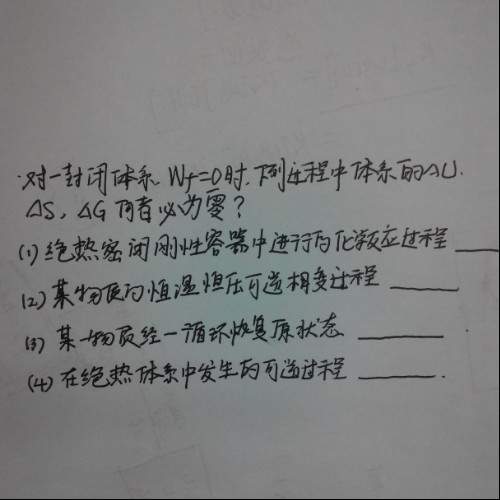 对一封闭体系,Wf=0时,下列过程中体系的△U.
△S,△G何者必为零?
(1)绝热密闭刚性容器中进行的化学反应过程____
(2)某物质的恒温恒压可逆相变过程____
(3)某一物质经一循环恢复原状态____
(4)在绝热体系中发生的可逆过程____.